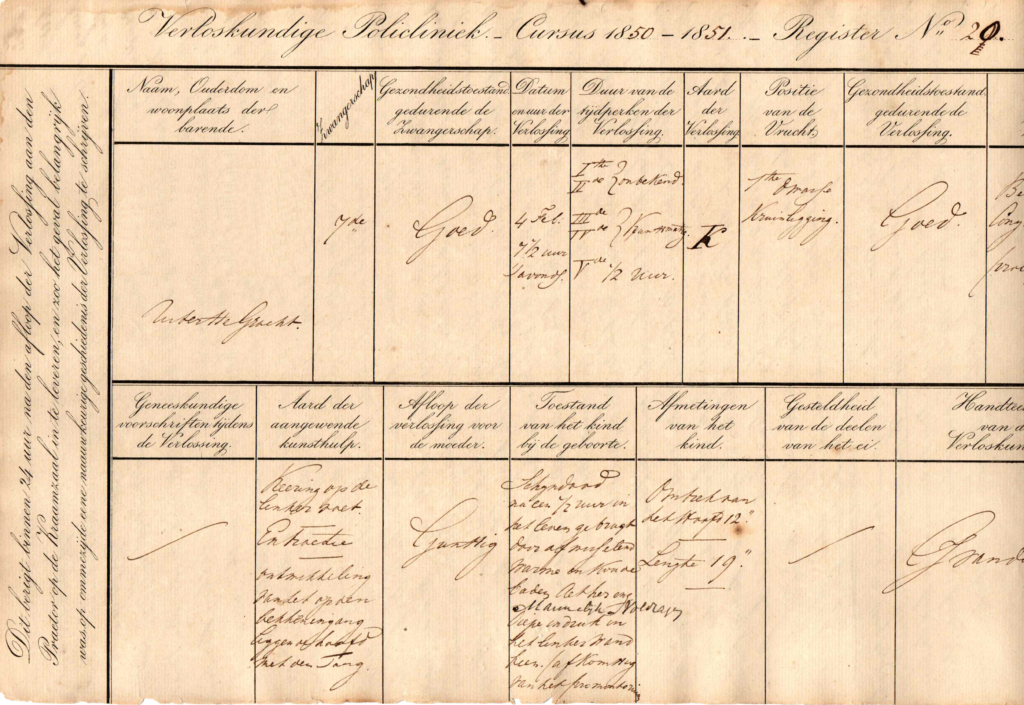 Verloskundige Policliniek. – Cursus 1850 – 1851. – Register No. 20.
Dit berigt binnen 24 uur na den afloop der Verlossing aan den
Praetor op de Kraamzaal in te leveren, en zoo het geval belangrijk
was, op ommezijde eene naauwkeurige geschiedenis der Verlossing te schrijven.
Naam, Ouderdom en
woonplaats der
barende.
Zwangerschap
Gezondheidstoestand
gedurende de
Zwangerschap.
Datum
en uur der
Verlossing
Duur van de
tijdperken der
Verlossing.
Aard
der
Verlossing
Positie
van de
Vrucht.
Gezondheidstoestand
gedurende de
Verlossing.
Gracht.
7de
Goed.
4 Feb.
7 1/2 uur
's avonds.
Iste
IIde } onbekend.
IIIde
IVde } Kunstmatig.
Vde 1/2 uur.
K
1ste dwarse
Kruinligging.
Goed.
Geneeskundige
voorschriften tijdens
de Verlossing.
Aard der
aangewende
kunsthulp.
Afloop der
verlossing voor
de moeder.
Toestand
van het kind
bij de geboorte.
Afmetingen
van het
kind.
Gesteldheid
van de deelen
van het ei.
Handtee
van d
Verloskun
Keering op de
linker voet.
Extractie
ontwikkeling
van het op den
bekkeningang
liggend hoofd
met den Tang.
Gunstig
Schijndood
na een 1/2 uur in
het leven gebragt
door afwisselend
warme en koude
baden Aether enz
Mannelijk Voldragen
Diepe indruk in
het linker wand
been. (afkomstig
van het promontorium
Omtrek van
het Hoofd 12"
Lengte 19"